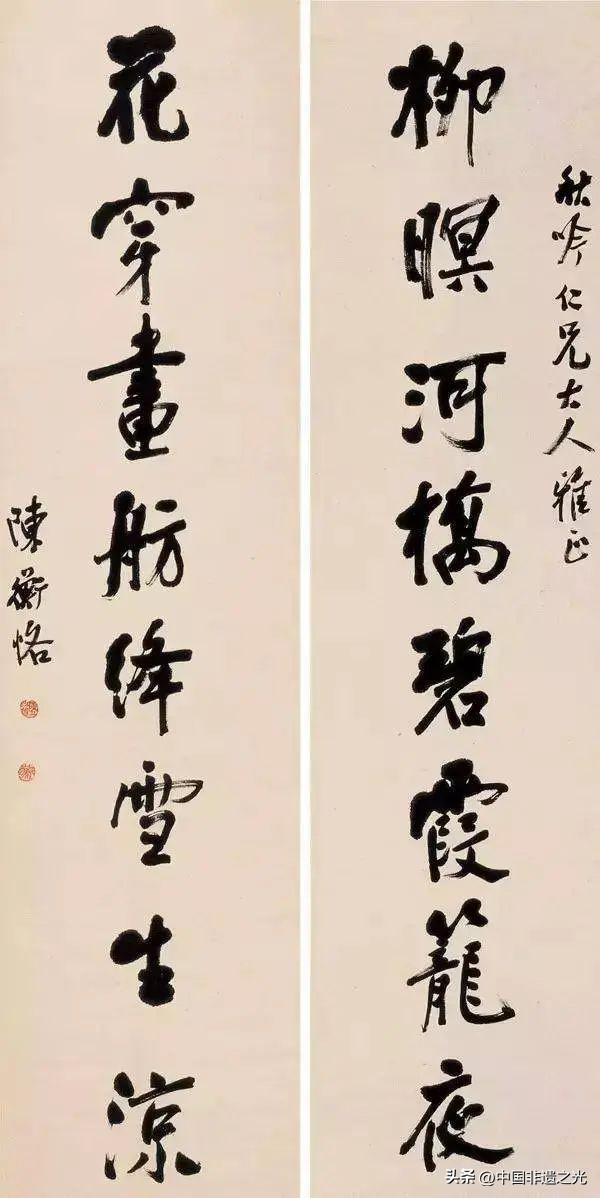 秋吟仁兄大人雅正
柳暝河橋碧霞籠夜
花穿畫舫絳雪生涼
陳衡恪
头条 @中国非遗之光